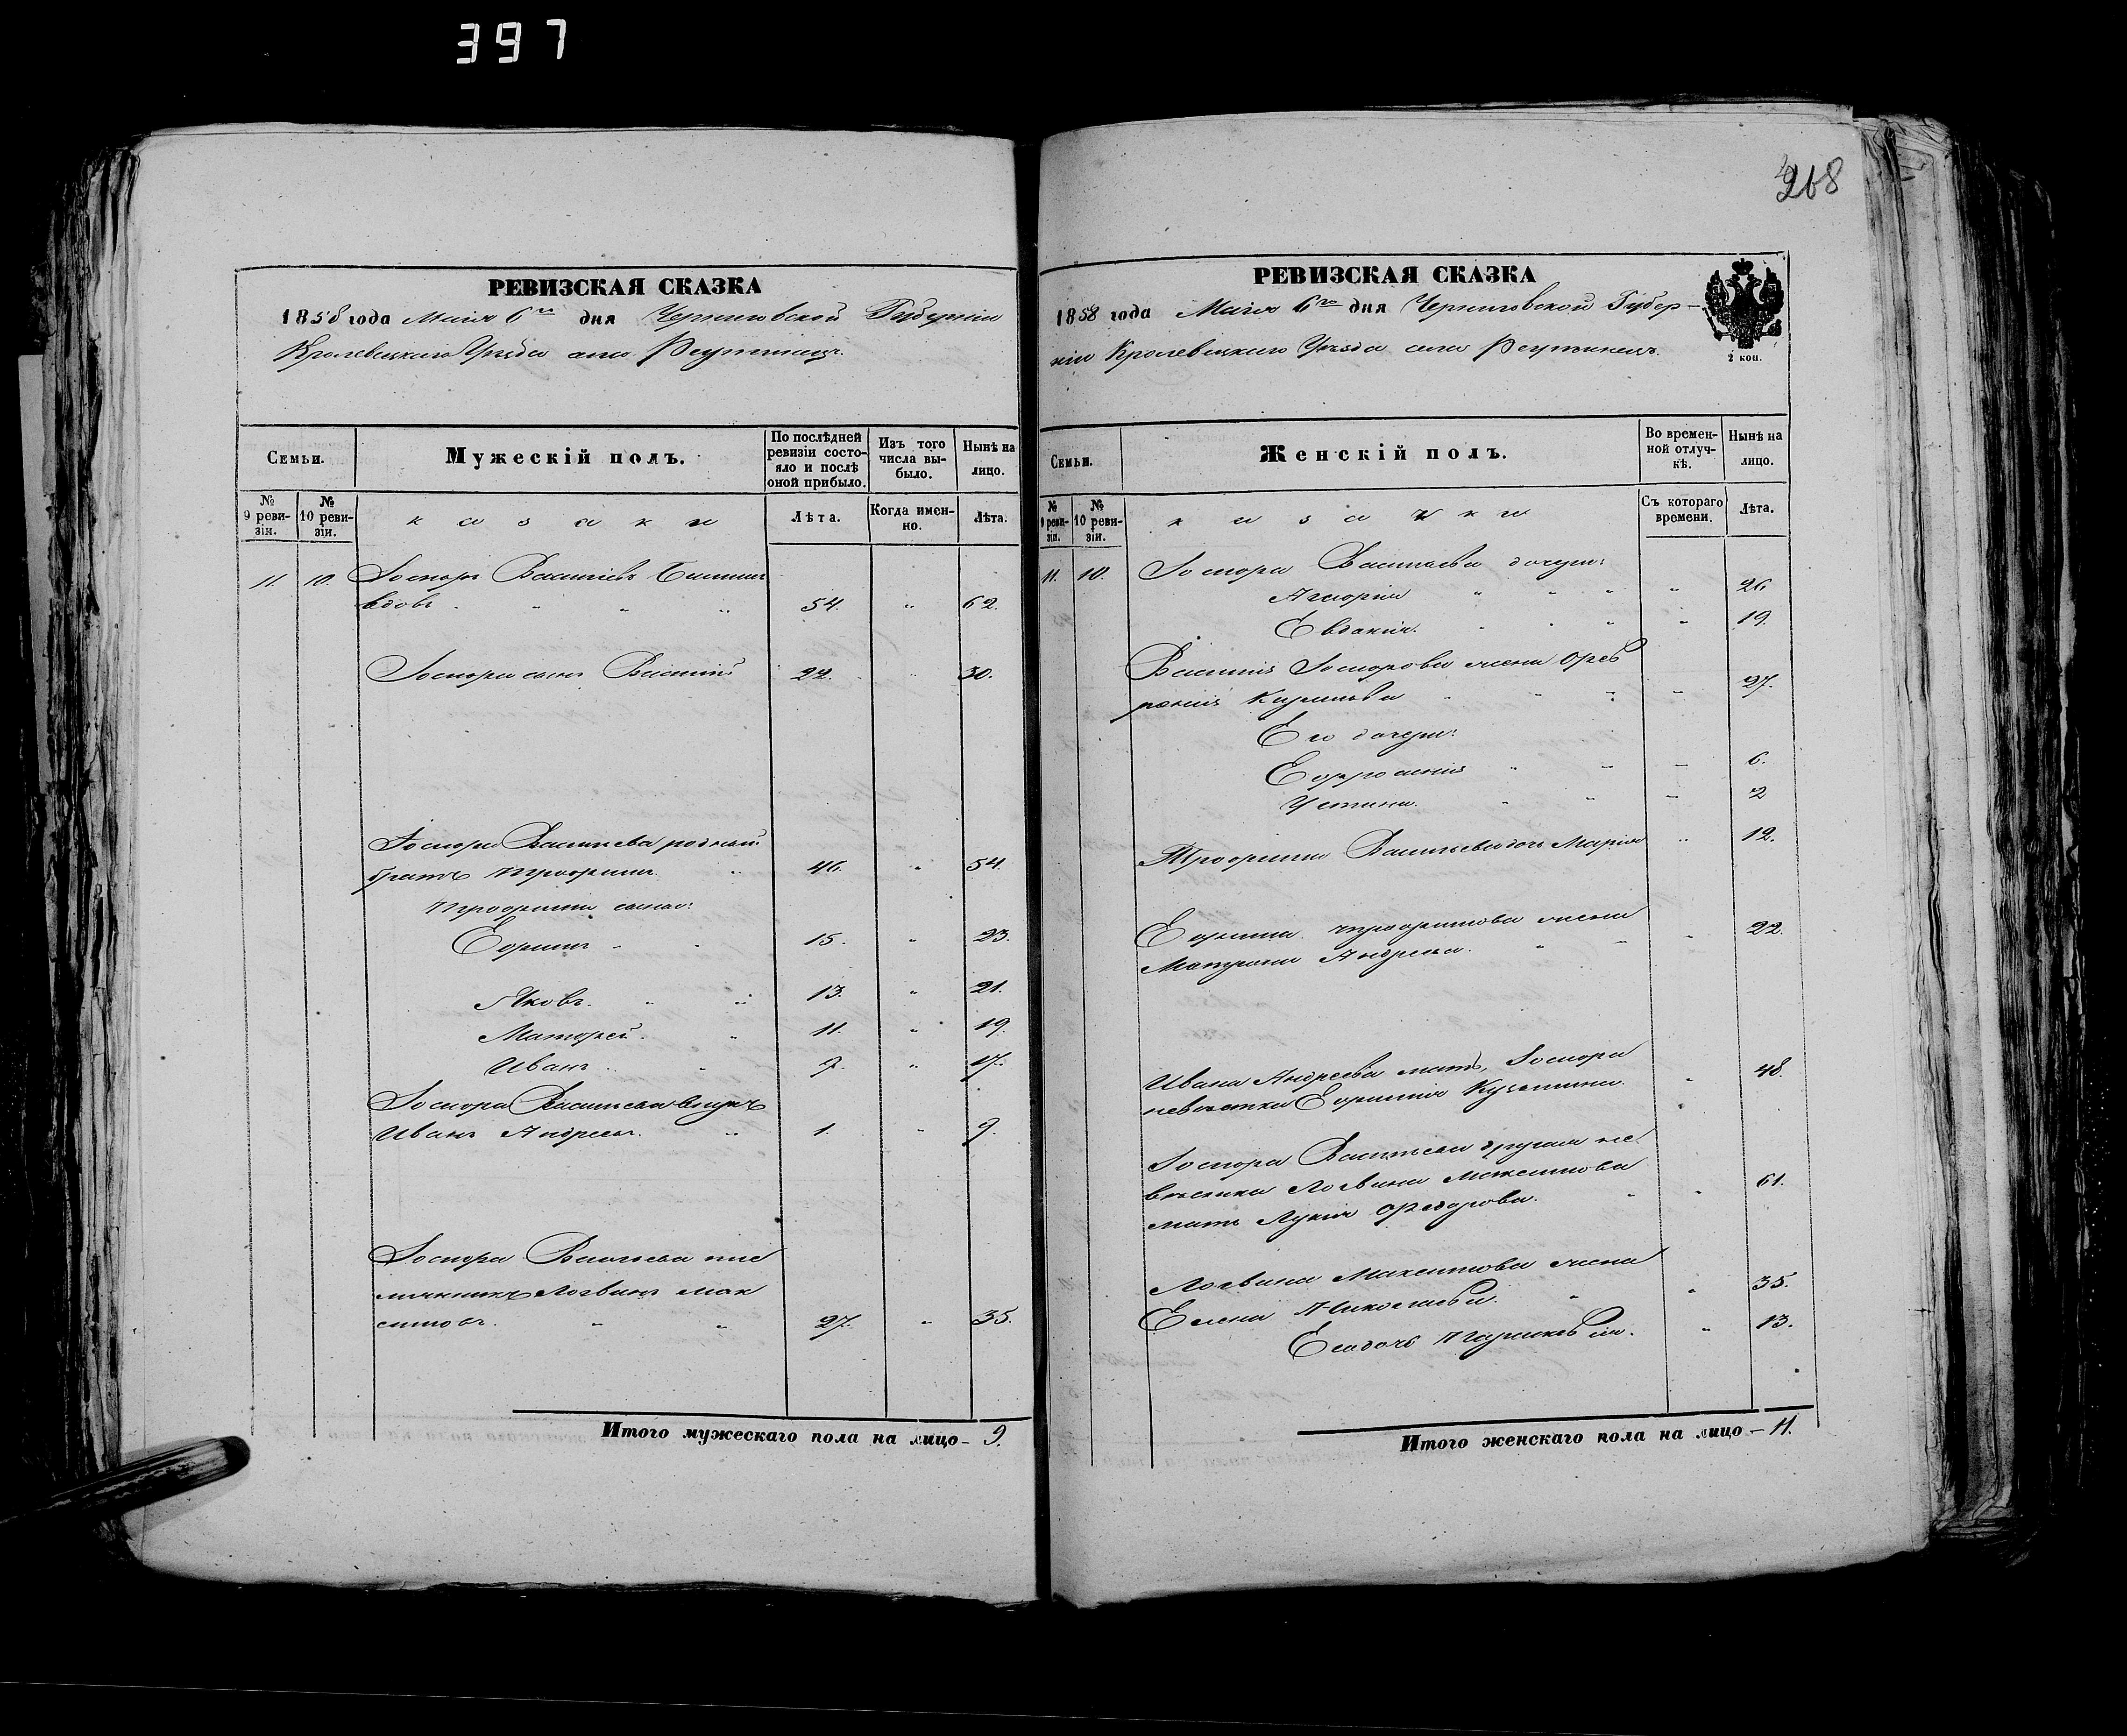 397
268
РЕВИЗСКАЯ СКАЗКА
1858 года Маія 6го дня Черниговской Губерніи
Кролевецкаго Уѣзда села Реутинецъ.
Семьи.
Мужескій полъ.
По послѣдней ревизіи состояло и послѣ оной прибыло.
Изъ того числа выбыло.
Нынѣ на лицо.
№ 9 ревизіи.
№ 10 ревизіи.
козаки
Лѣта.
Когда именно.
Лѣта.
11. 10. Васильевъ
вдовъ 54. " 62.
сынъ Василій 22. " 30.
Васильева родный
братъ Трофимъ 46. " 54.
Трофима сыновья:
Ефимъ 15. " 23.
Яковъ. 13. " 21.
Матфей. 11. " 19.
Иванъ 9. " 17.
Васильева внукъ
Иванъ Андреевъ. 1. " 9.
Васильева пле
мянникъ Логвинъ Мак
симовъ. 27. " 35.
Итого мужескаго пола на лицо - 9.
РЕВИЗСКАЯ СКАЗКА
1858 года Маія 6го дня Черниговской Губер-
ніи Кролевецкаго Уѣзда села Реутинецъ.
2 коп.
Семьи.
Женскій полъ.
Во временной отлучкѣ.
Нынѣ на лицо.
№ 9 ревизіи.
№ 10 ревизіи.
козачки
Съ котораго времени.
Лѣта.
11. 10. Васильева дочери:
" 26
Евдокія. " 19.
Василія жена Фев
ронія Кирилова " 27.
Его дочери:
Ефросинія " 6.
Устина. " 2
Трофима Васильева дочь Марія " 12.
Ефима Трофимова жена
Матрона Андреева. " 22.
Ивана Андреева мать,
невѣстка Ефимія Кузьмина. " 48.
Васильева другая не
вѣстка Логвина Максимова
мать Лукія Федорова. " 61.
Логвина Максимова жена
Елена Николаева. " 35.
Ея дочь " 13.
Итого женскаго пола на лицо - 11.